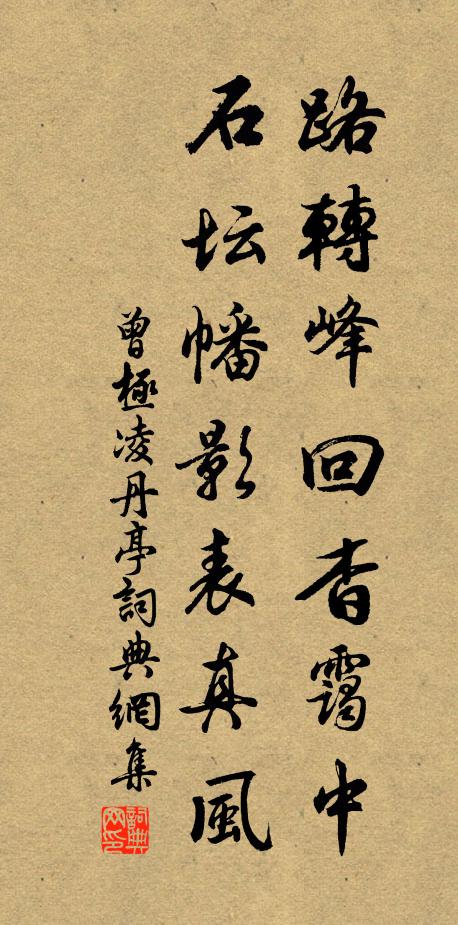 路轉峰回杳靄中
石坛幡影表真風
曾極凌丹亭詞典網集
詞典网印